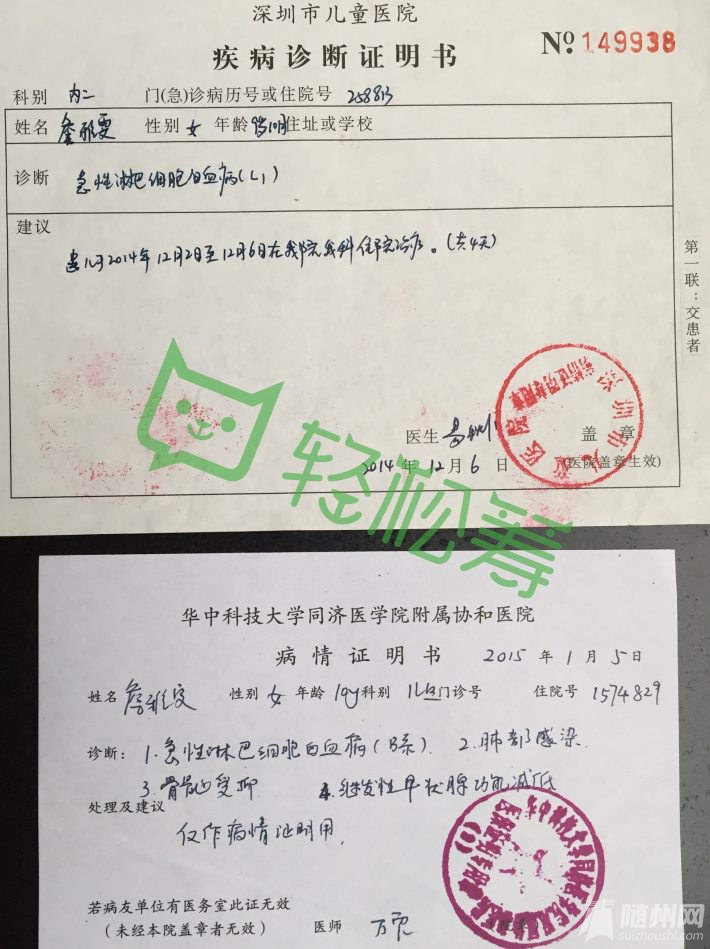 深圳市儿童医院
疾病诊断证明书
№ 149938
科别 内二 门(急)诊病历号或住院号 258813
姓名 詹雅雯 性别 女 年龄 住址或学校
诊断 急性淋巴细胞白血病(L1)
建议
患儿于2014年12月2日至12月6日在我院我科住院治疗。(共4天)
第一联：交患者
医生
盖章
2014年12月6日
(医院盖章生效)
深圳市儿童医院
轻松筹
华中科技大学同济医学院附属协和医院
病情证明书 2015年1月5日
姓名 詹雅雯 性别 女 年龄 10y 科别 门诊号 住院号 1574829
诊断: 1.急性淋巴细胞白血病(B系). 2.肺部感染.
3.骨髓受抑 4.继发性甲状腺功能减低
处理及建议
仅作病情证明用.
若病友单位有医务室此证无效
(未经本院盖章者无效) 医师
随州网
suizhoushi.com